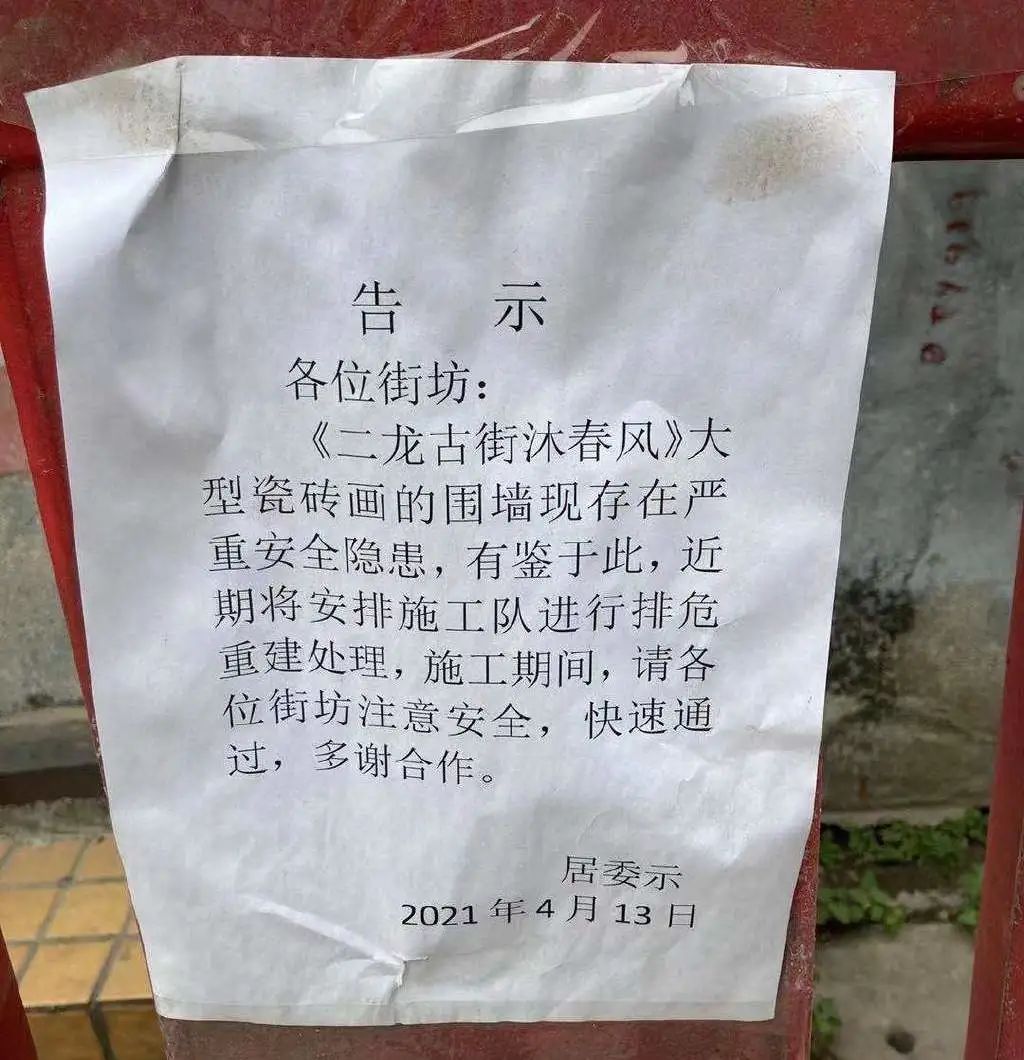 告 示
各位街坊：
《二龙古街沐春风》大
型瓷砖画的围墙现存在严
重安全隐患，有鉴于此，近
期将安排施工队进行排危
重建处理，施工期间，请各
位街坊注意安全，快速通
过，多谢合作。
居委示
2021 年 4 月 13 日